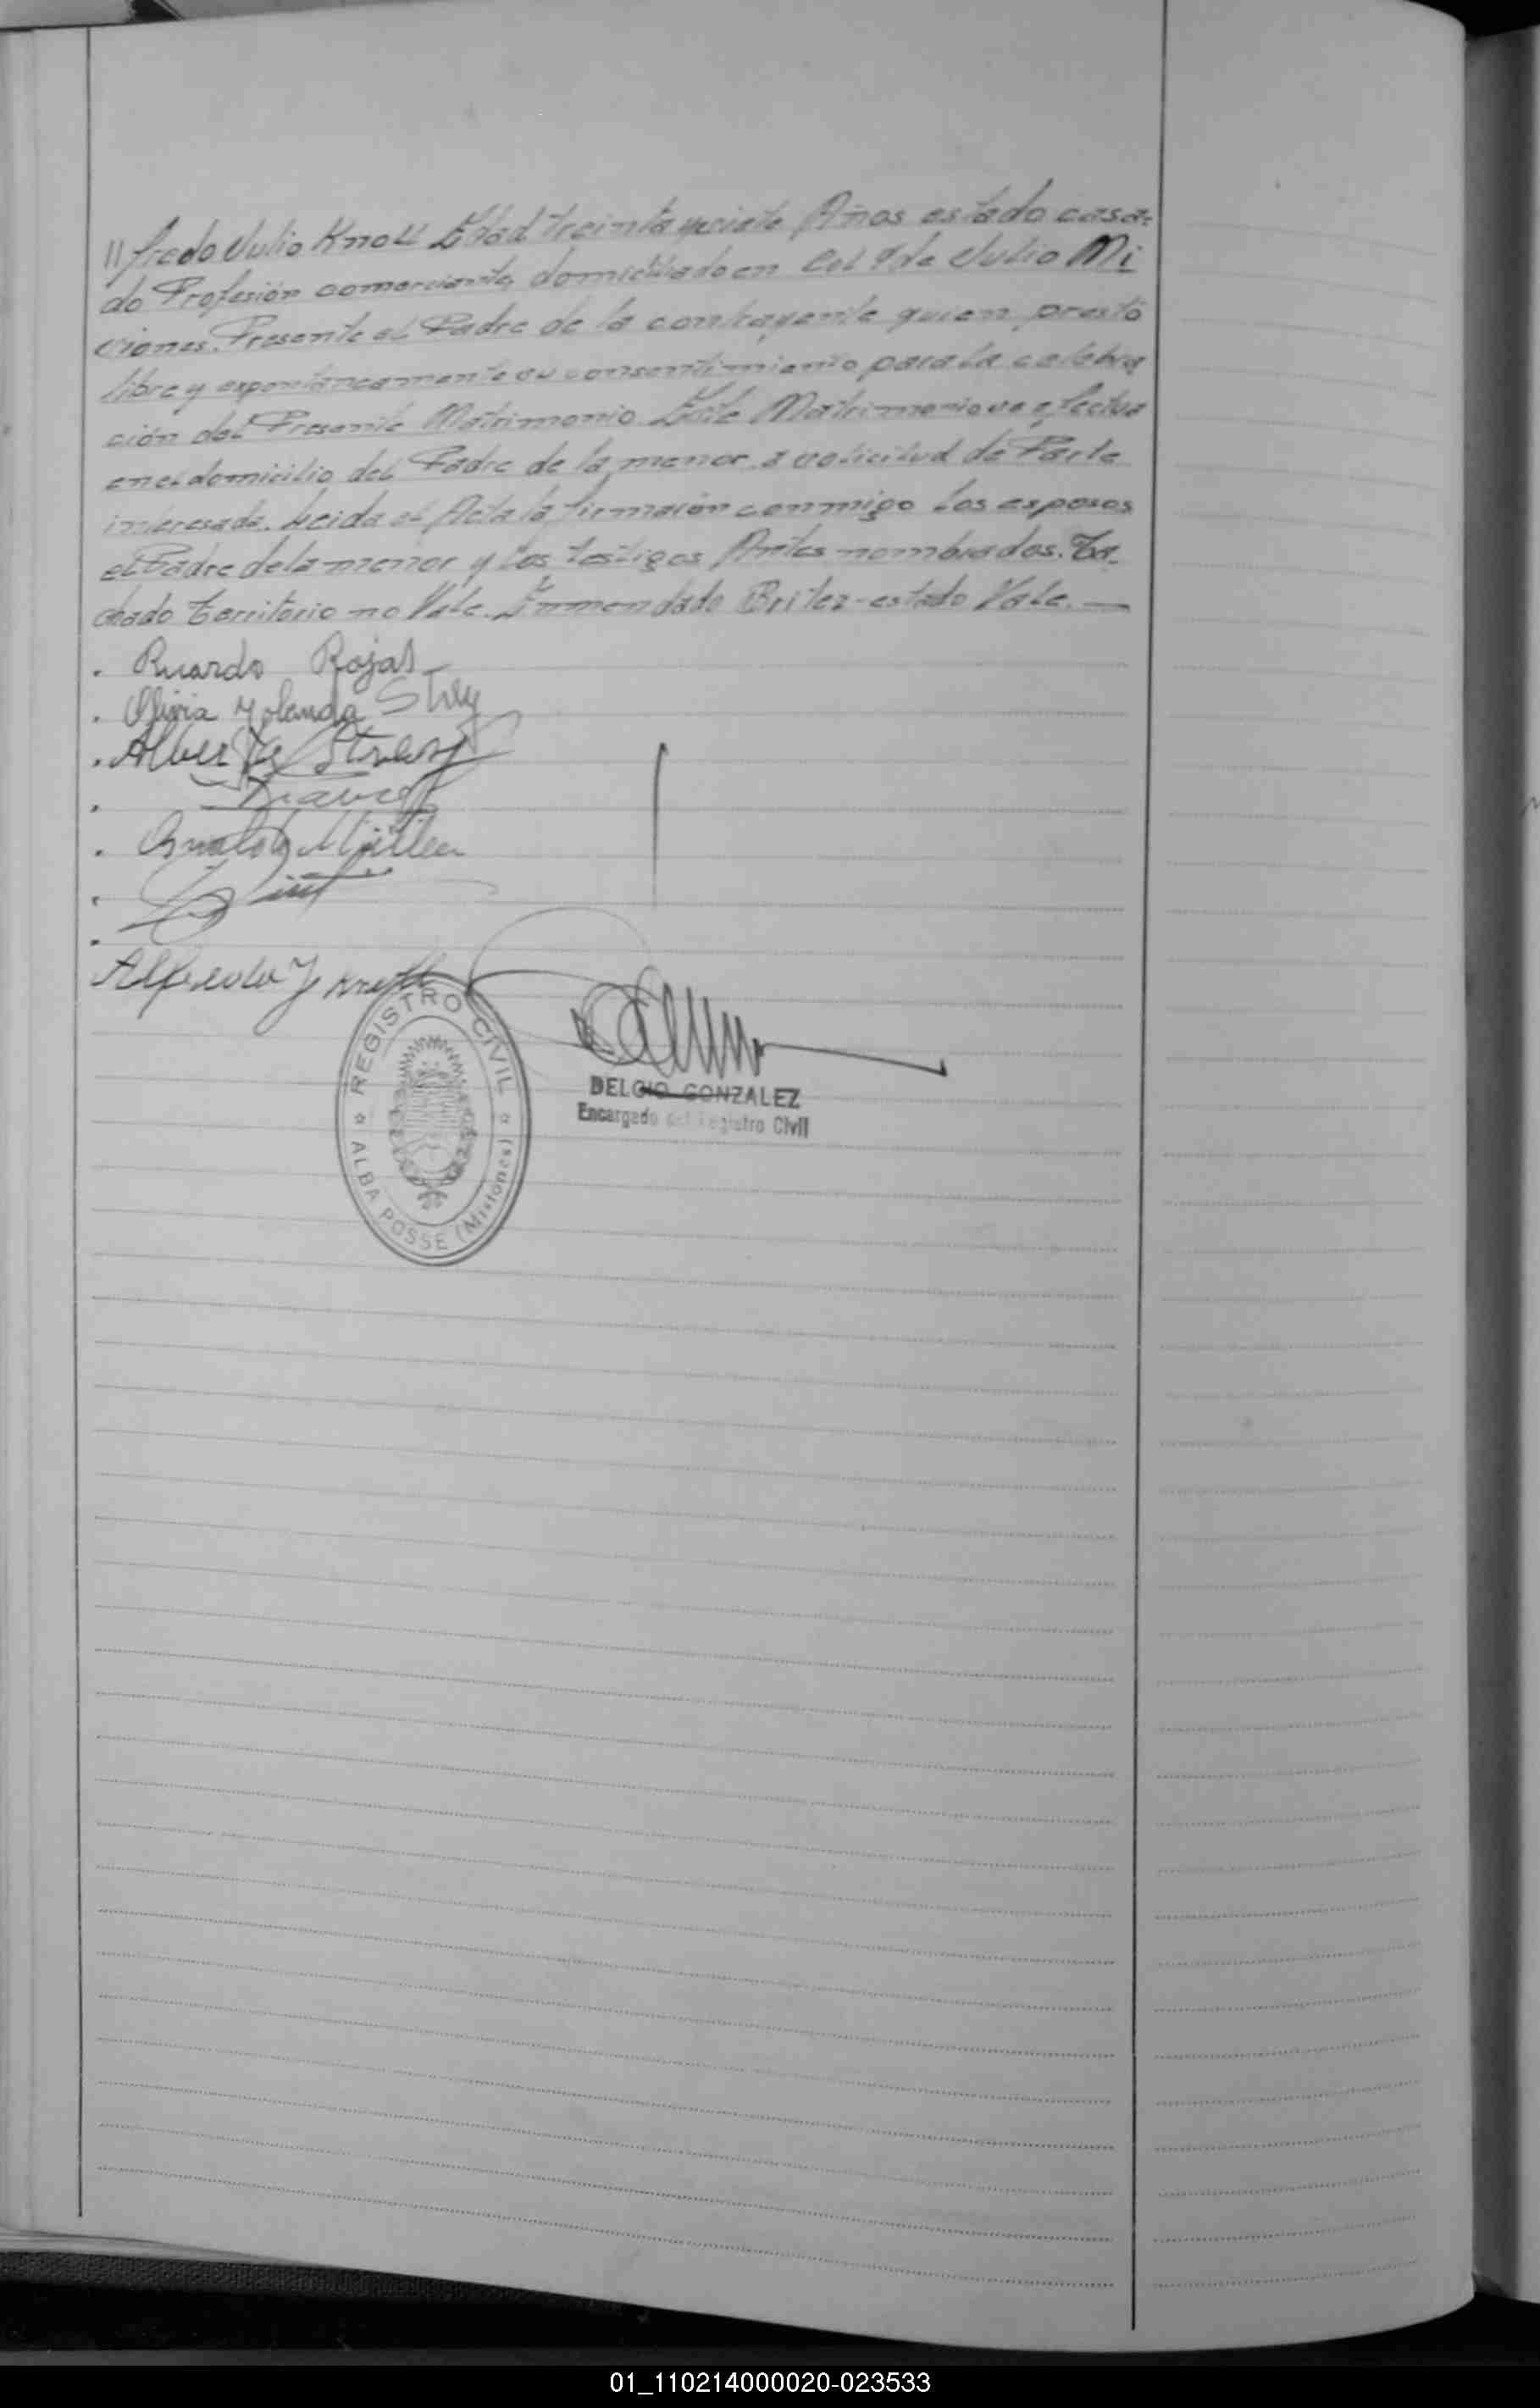 "fredo Julio Knoll Edad treinta y siete Años estado casa-
do Profesión comerciante, domiciliado en Col 9 de Julio Mi
siones. Presente el Padre de la contrayente quien prestó
libre y expontaneamente su consentimiento para la celebra
ción del Presente Matrimonio. Este Matrimonio se efectua
en el domicilio del Padre de la menor a solicitud de Parte
interesada. Leida el Acta la firmarón conmigo los esposos
el Padre de la menor y los testigos Antes nombrados. Ta-
chado territorio no Vale. Enmendado Britez-estado Vale.—
Ricardo Rojas
Yolanda
Müller
Alfredo J Knoll
REGISTRO CIVIL
ALBA POSSE (Misiones)
DELCIO GONZALEZ
Encargado del Registro Civil
01_110214000020-023533